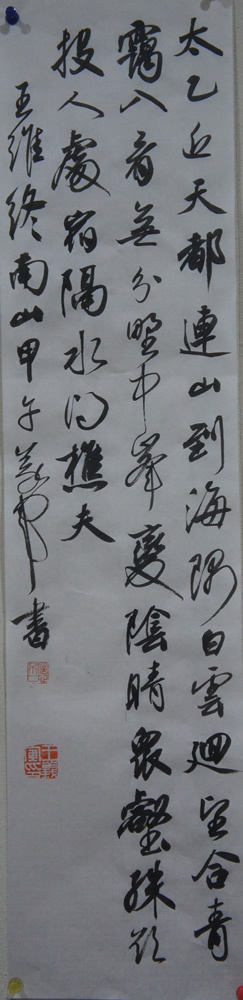 太乙近天都連山到海隅白雲迴望合青
靄入看無分野中峯變陰晴眾壑殊欲
投人處宿隔水問樵夫
王維終南山甲午書